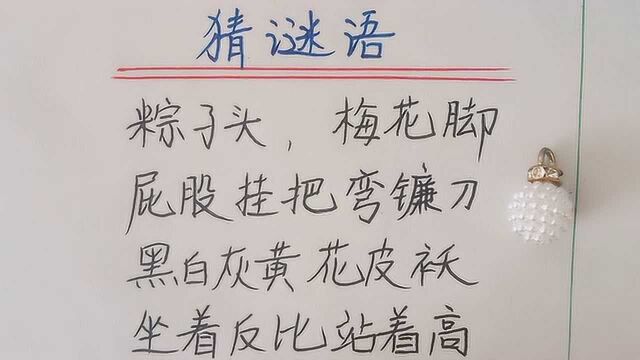 猜谜语
粽子头，梅花脚
屁股挂把弯镰刀
黑白灰黄花皮袄
坐着反比站着高